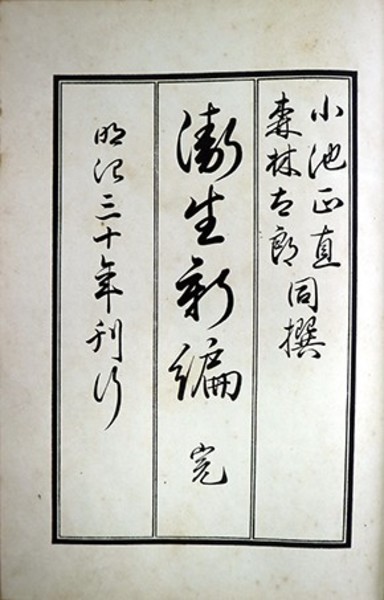 小池正直
森林太郎同撰
衛生新編 完
明治三十年刊行